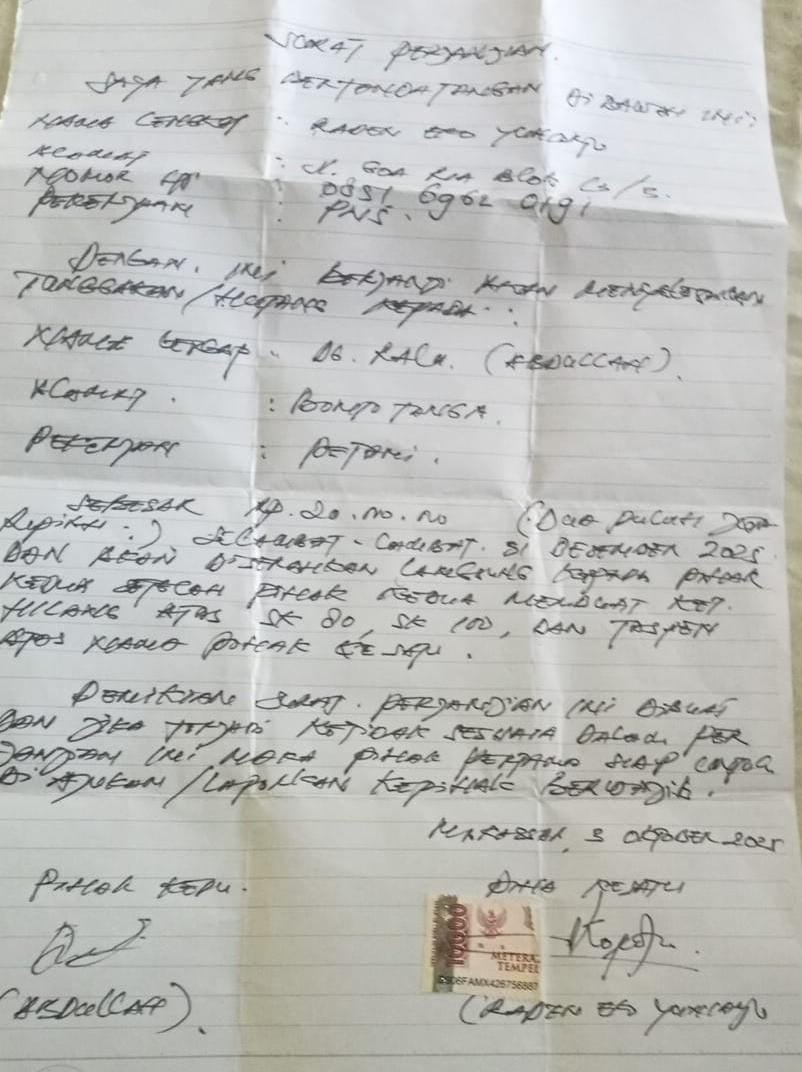 SURAT PERJANJIAN.
SAYA YANG BERTONDATANGAN DI BAWAH INI:
NAMA LENGKAP : RADEN EKO
ALAMAT : JL. GOA RIA BLOK C3/5.
NOMOR HP : 0851 6962 0191
PEKERJAAN : PNS.
DENGAN INI BERJANJI AKAN MENYELESAIKAN
TUNGGAKAN/HUTANG KEPADA :
NAMA LENGKAP : DG. RALA. (ABDULLAH).
ALAMAT : BONTO TANGA.
PEKERJAAN : PETANI.
SEBESAR RP. 20.000.000 (DUA PULUH JUTA
RUPIAH:) SELAMBAT-LAMBAT. 31 DESEMBER 2025.
DAN AKAN DISERAHKAN LANGSUNG KEPADA PIHAK
KEDUA SETELAH PIHAK KEDUA MEMBUAT KET.
HILANG ATAS SK 80, SK 100, DAN TASPEN
ATAS NAMA PIHAK KESATU.
DEMIKIAN SURAT PERJANJIAN INI DIBUAT
DAN JIKA TERJADI KETIDAK SESUAIA DALAM PER
JANJIAN INI MAKA PIHAK PERTAMA SIAP
DI AJUKAN/LAPORKAN KEPIHAK BERWAJIB.
MAKASSAR, 3 OKTOBER 2025
PIHAK KEDU. PIHA KESATU
10000
METERAI
TEMPEL
906FAMX426756887
(ABDULLAH). (RADEN EKO